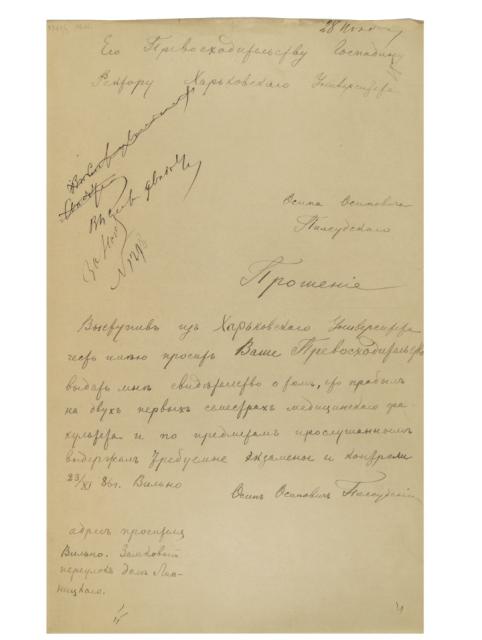 28 
Его Превосходительству Господину
Ректору Харьковского Университета
Осипа Осиповича
Пилсудского
Прошеніе
Выступивъ изъ Харьковского Университета
честь имѣю просить Ваше Превосходительство
выдать мнѣ свидѣтельство о томъ, что пробылъ
на двухъ первыхъ семестрахъ медицинскаго фа-
культета и по предметамъ прослушаннымъ
выдержалъ требуемые экзамены и
23/XI 86 г. Вильно
Осипъ Осиповичъ Пилсудскій
адресъ просителя
Вильно. Замковый
переулокъ домъ
ницкаго.